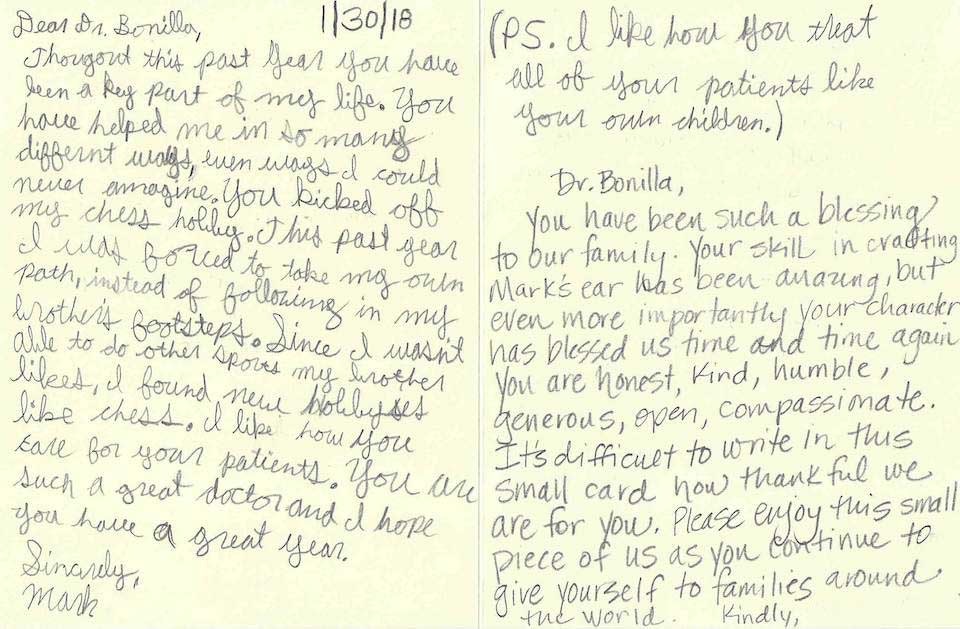 1/30/18
Dear Dr. Bonilla,
Thougout this past year you have
been a key part of my life. You
have helped me in so many
differnt ways, even ways I could
never amagine. You kicked off
my chess hobby. This past year
I was forced to take my own
path, instead of following in my
brother's footsteps. Since I wasn't
able to do other sports my brother
likes, I found new hobbyses
like chess. I like how you
care for your patients. You are
such a great doctor and I hope
you have a great year.
Sincerly,
Mark
(PS. I like how you treat
all of your patients like
your own children.)
Dr. Bonilla,
You have been such a blessing
to our family. Your skill in crafting
Mark's ear has been amazing, but
even more importantly your character
has blessed us time and time again
You are honest, kind, humble,
generous, open, compassionate.
It's difficult to write in this
small card how thankful we
are for you. Please enjoy this small
piece of us as you continue to
give yourself to families around
the world. Kindly,